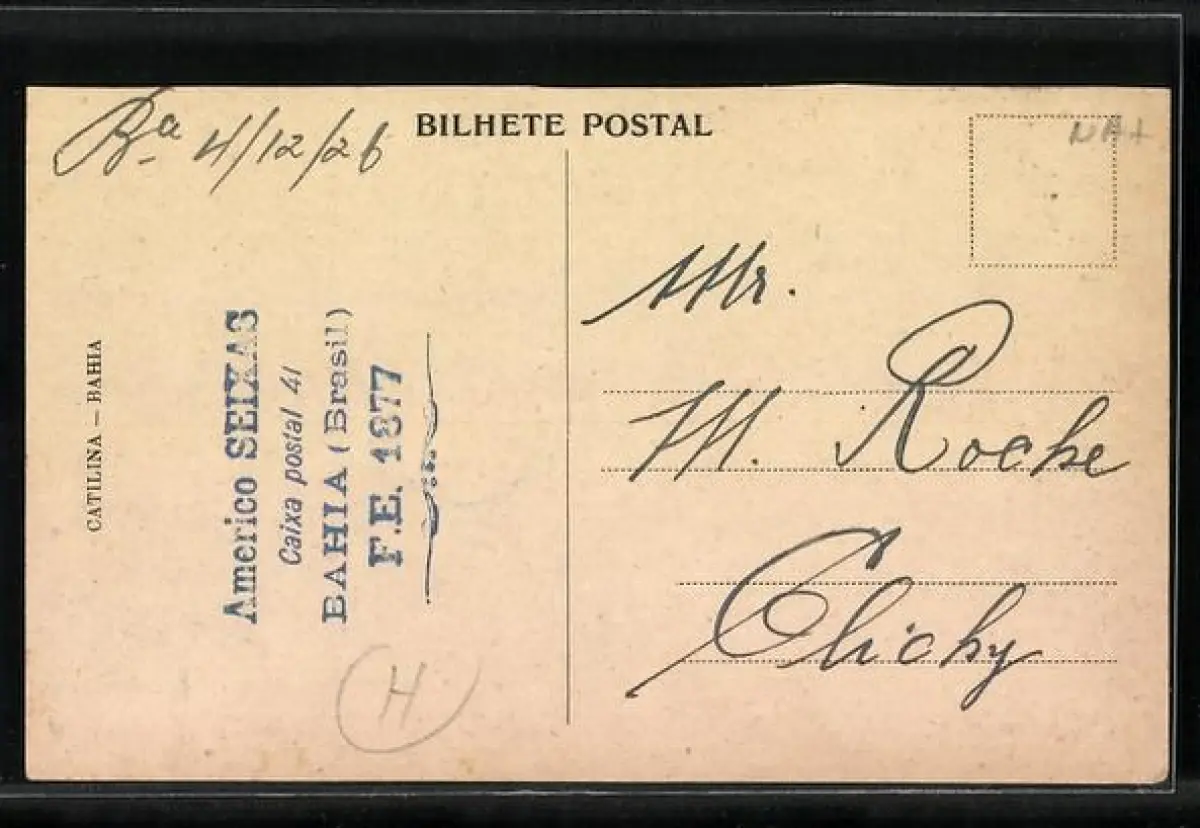 Ba 4/12/26
BILHETE POSTAL
CATILINA — BAHIA
Americo SEIXAS
Caixa postal 41
BAHIA (Brasil)
F.E. 1877
H
Mr.
M. Roche
Clichy